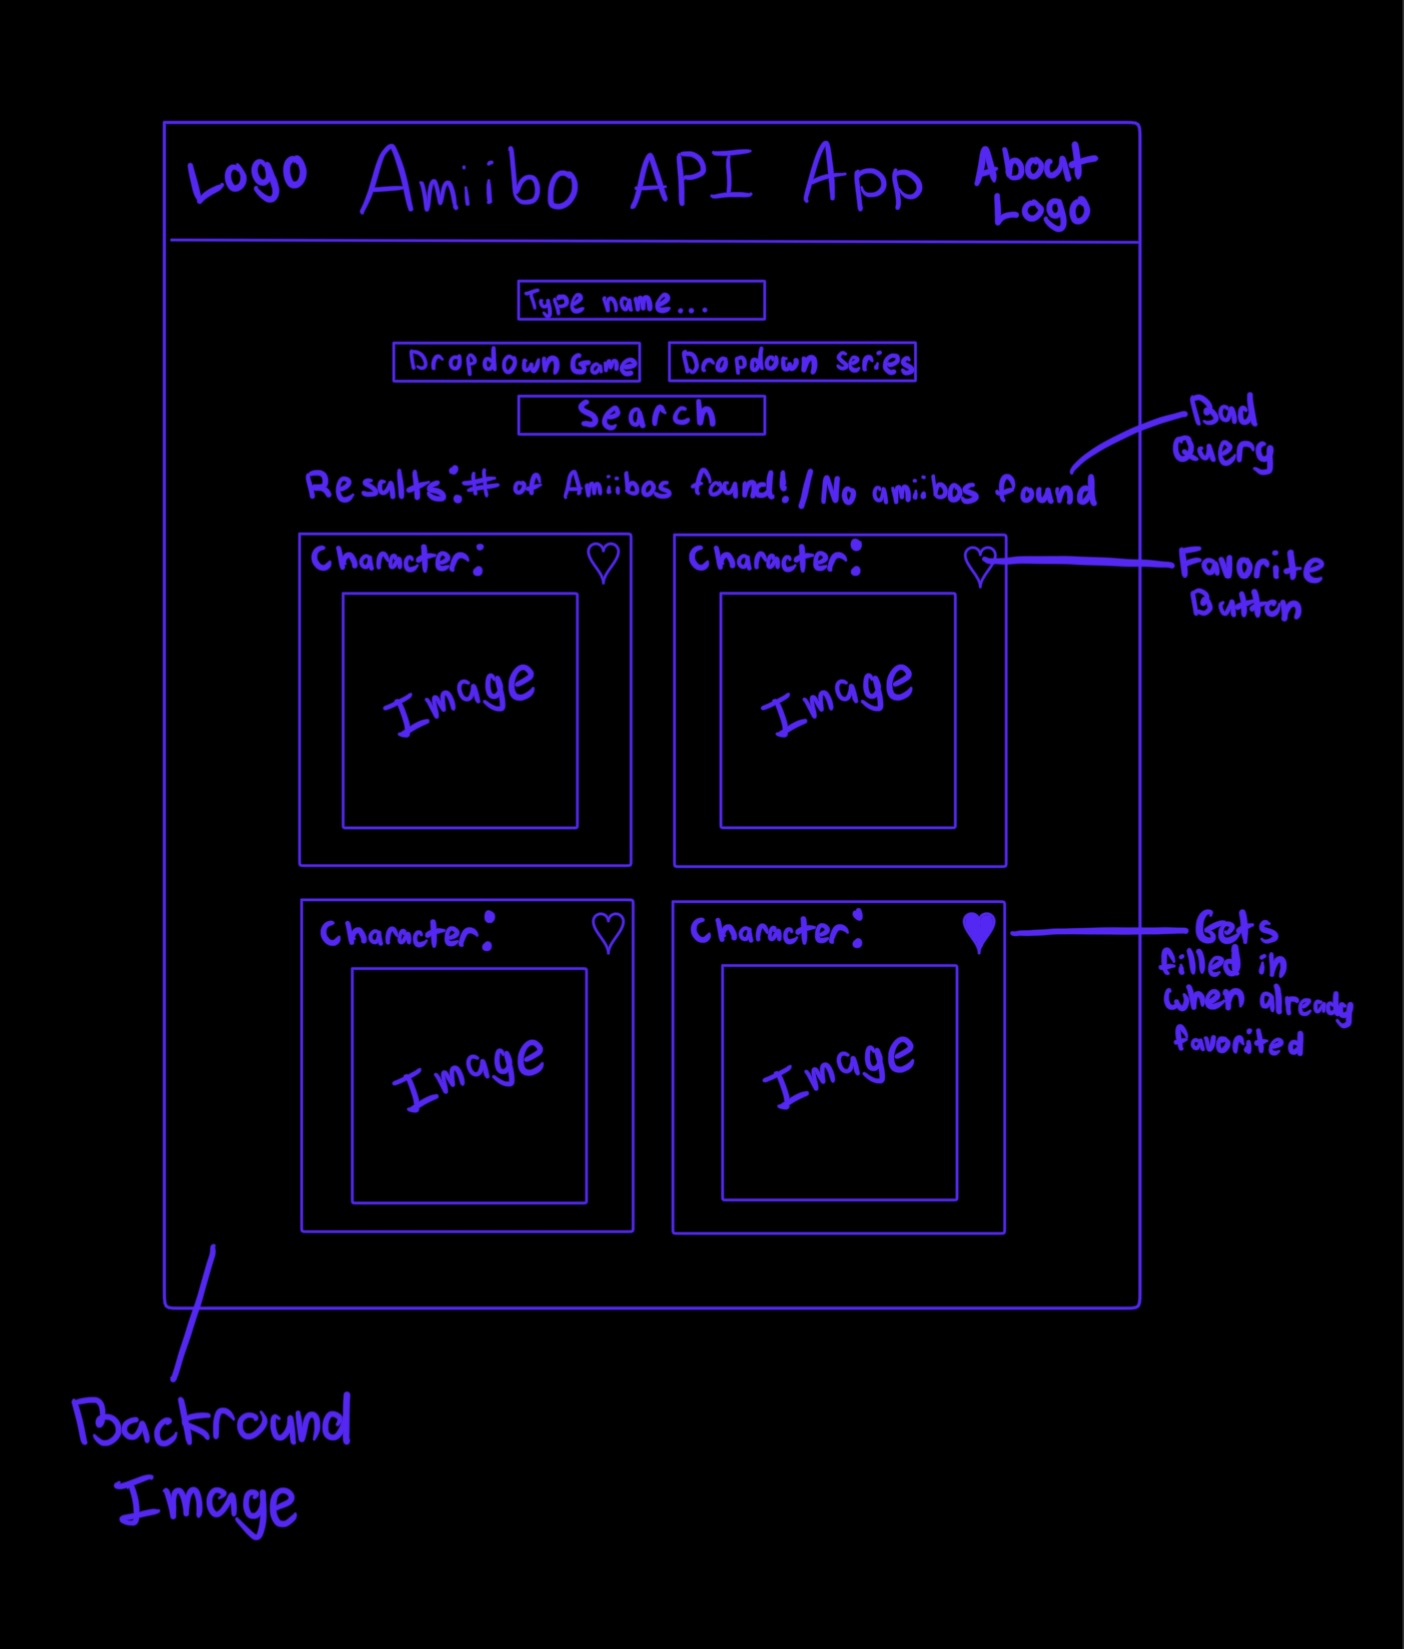 Logo Amiibo API App About Logo
Type name...
Dropdown Game Dropdown Series
Search
Results: # of Amiibos found! / No amiibos found
Bad
Query
Character: Character:
Favorite
Button
Image Image
Character: Character:
Gets
filled in
when already
favorited
Image Image
Backround
Image